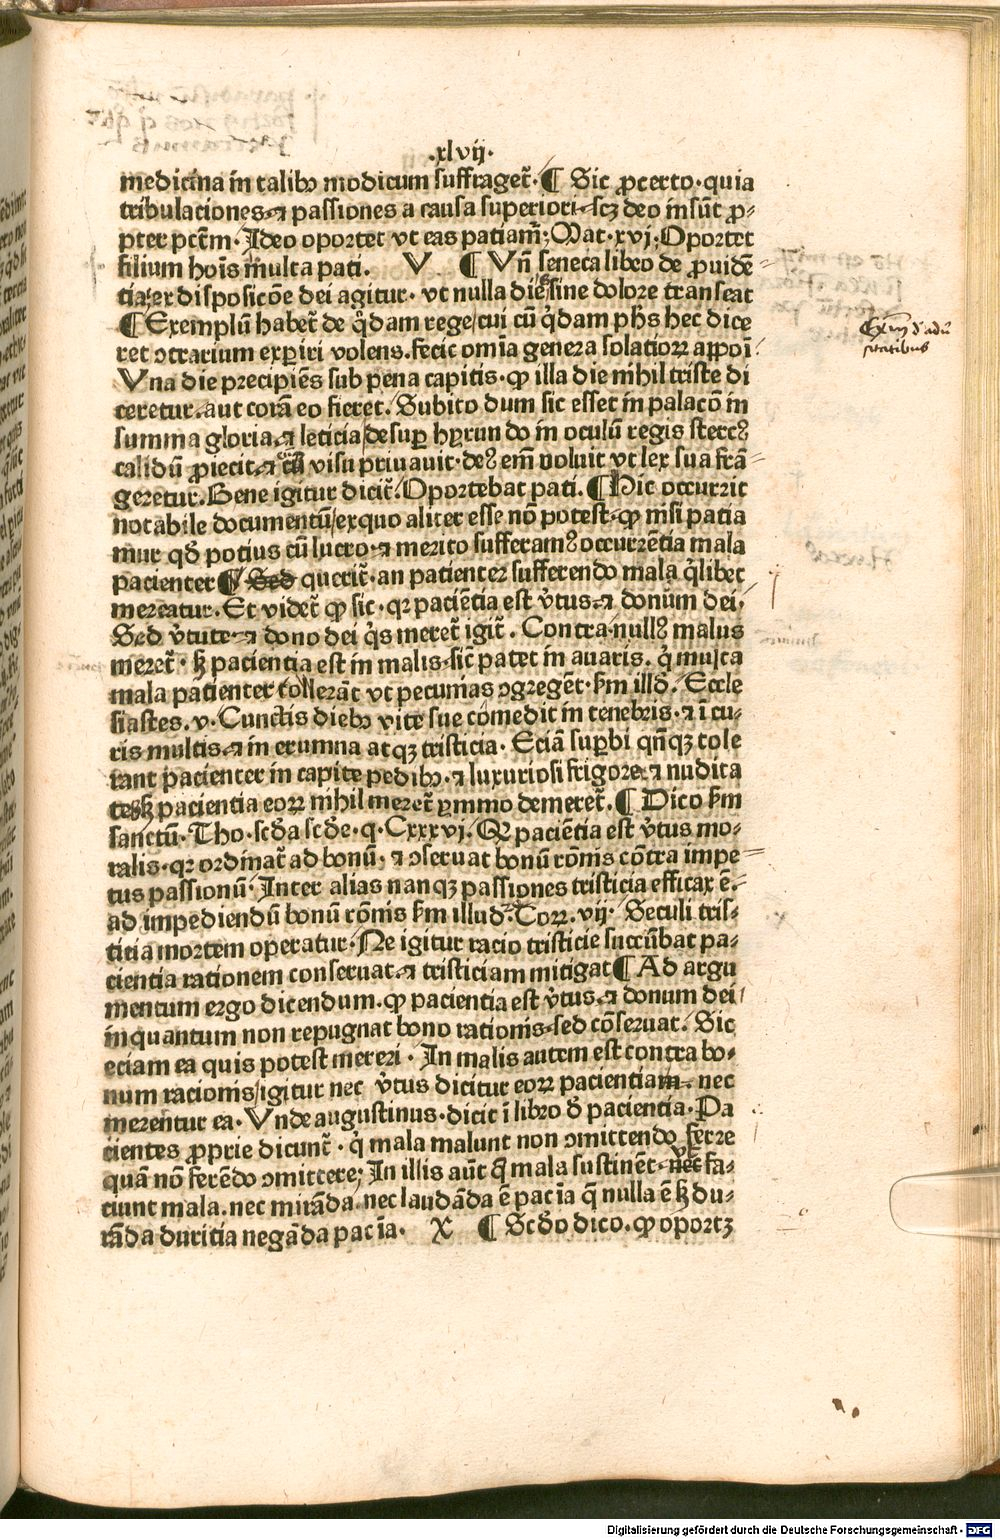 .xlvij.
medicina in talibꝫ modicum suffraget᷑. ¶ Sic ꝓcerto. quia
tribulaciones. ⁊ passiones a causa superiori. scꝫ deo insūt ꝓ-
pter pctm̄. Ideo oportet vt eas patiam᷑; Mat. xvi. Oportet
filium hoīs multa pati. V ¶ Vn̄ seneca libro de ꝓuidē-
tia. ex disposicōe dei agitur. vt nulla dies sine dolore transeat
¶ Exemplū habet᷑ de q̊dam rege/cui cū q̊dam ph̄s hec dice
ret ↄtrarium experiri volens. fecit om̄ia genera solatioꝝ aꝑpoī.
Vna die precipiēs sub pena capitis. ꝙ illa die nihil triste di
ceretur. aut corā eo fieret. Subito dum sic esset in palacō in
summa gloria. ⁊ leticia/desuꝑ hyrundo in oculū regis stercꝰ
calidū ꝓiecit. ⁊ cū visu priuauit. deꝰ em̄ voluit vt lex sua frā-
geretur. Bene igitur dicit᷑. Oportebat pati. ¶ Hic occurrit
notabile documentū/exquo aliter esse nō potest. ꝙ nisi patia
mur qd̄ potius cū lucro. ⁊ merito sufferamꝰ occurrētia mala
pacienter ¶ Sed querit᷑. an patienter sufferendo mala q̄libet
mereatur. Et videt᷑ ꝙ sic. qꝛ paciētia est v̓tus. ⁊ donum dei.
Sed v̓tute. ⁊ dono dei q̇s meret᷑ igit᷑. Contra. nullꝰ malus
meret᷑. sꝫ pacientia est in malis. sic̄ patet in auaris. q̇ multa
mala patienter tollerāt vt pecunias ↄgregēt. ẜm illd̄. Eccle
siastes. v. Cunctis diebꝫ vite sue comedit in tenebris. ⁊ ī cu-
ris multis. ⁊ in erumna atqꝫ tristicia. Eciā suꝑbi qn̄qꝫ tole
rant pacienter in capite pedibꝫ. ⁊ luxuriosi frigore. ⁊ nudita
tes. sꝫ pacientia eoꝝ nihil meret᷑ ymmo demeret᷑. ¶ Dico ẜm
sanctū. Tho. scd̄a scd̄e. q. Cxxxvi. Qꝙ paciētia est v̓tus mo-
ralis. qꝛ ordinat᷑ ad bonū. ⁊ ↄseruat bonū rōnis cōtra impe-
tus passionū. Inter alias nanqꝫ passiones tristicia efficax ē.
ad impediendū bonū rōnis ẜm illud. Corꝝ. vij. Seculi tris-
titia mortem operatur. Ne igitur racio tristicie succūbat pa-
cientia rationem conseruat. ⁊ tristiciam mitigat ¶ Ad argu
mentum ergo dicendum. ꝙ pacientia est v̓tus. ⁊ donum dei
inquantum non repugnat bono rationis. sed cōseruat. Sic
eciam ea quis potest mereri. In malis autem est contra bo-
num racionis/igitur nec v̓tus dicitur eoꝝ pacientia. nec
merentur ea. Vnde augustinus. dicit ī libro d̓ pacientia. Pa
cientes ꝓprie dicunt᷑. q̇ mala malunt non ↄmittendo ferre
quā nō ferēdo ↄmittere; In illis aūt q̇ mala sustinēt. vt fa-
ciunt mala. nec mirāda. nec laudāda ē pac̄ia q̄ nulla ē sꝫ du-
rāda duritia negāda pac̄ia. X ¶ Scd̄o dico. ꝙ oportꝫ
Digitalisierung gefördert durch die Deutsche Forschungsgemeinschaft - DFG